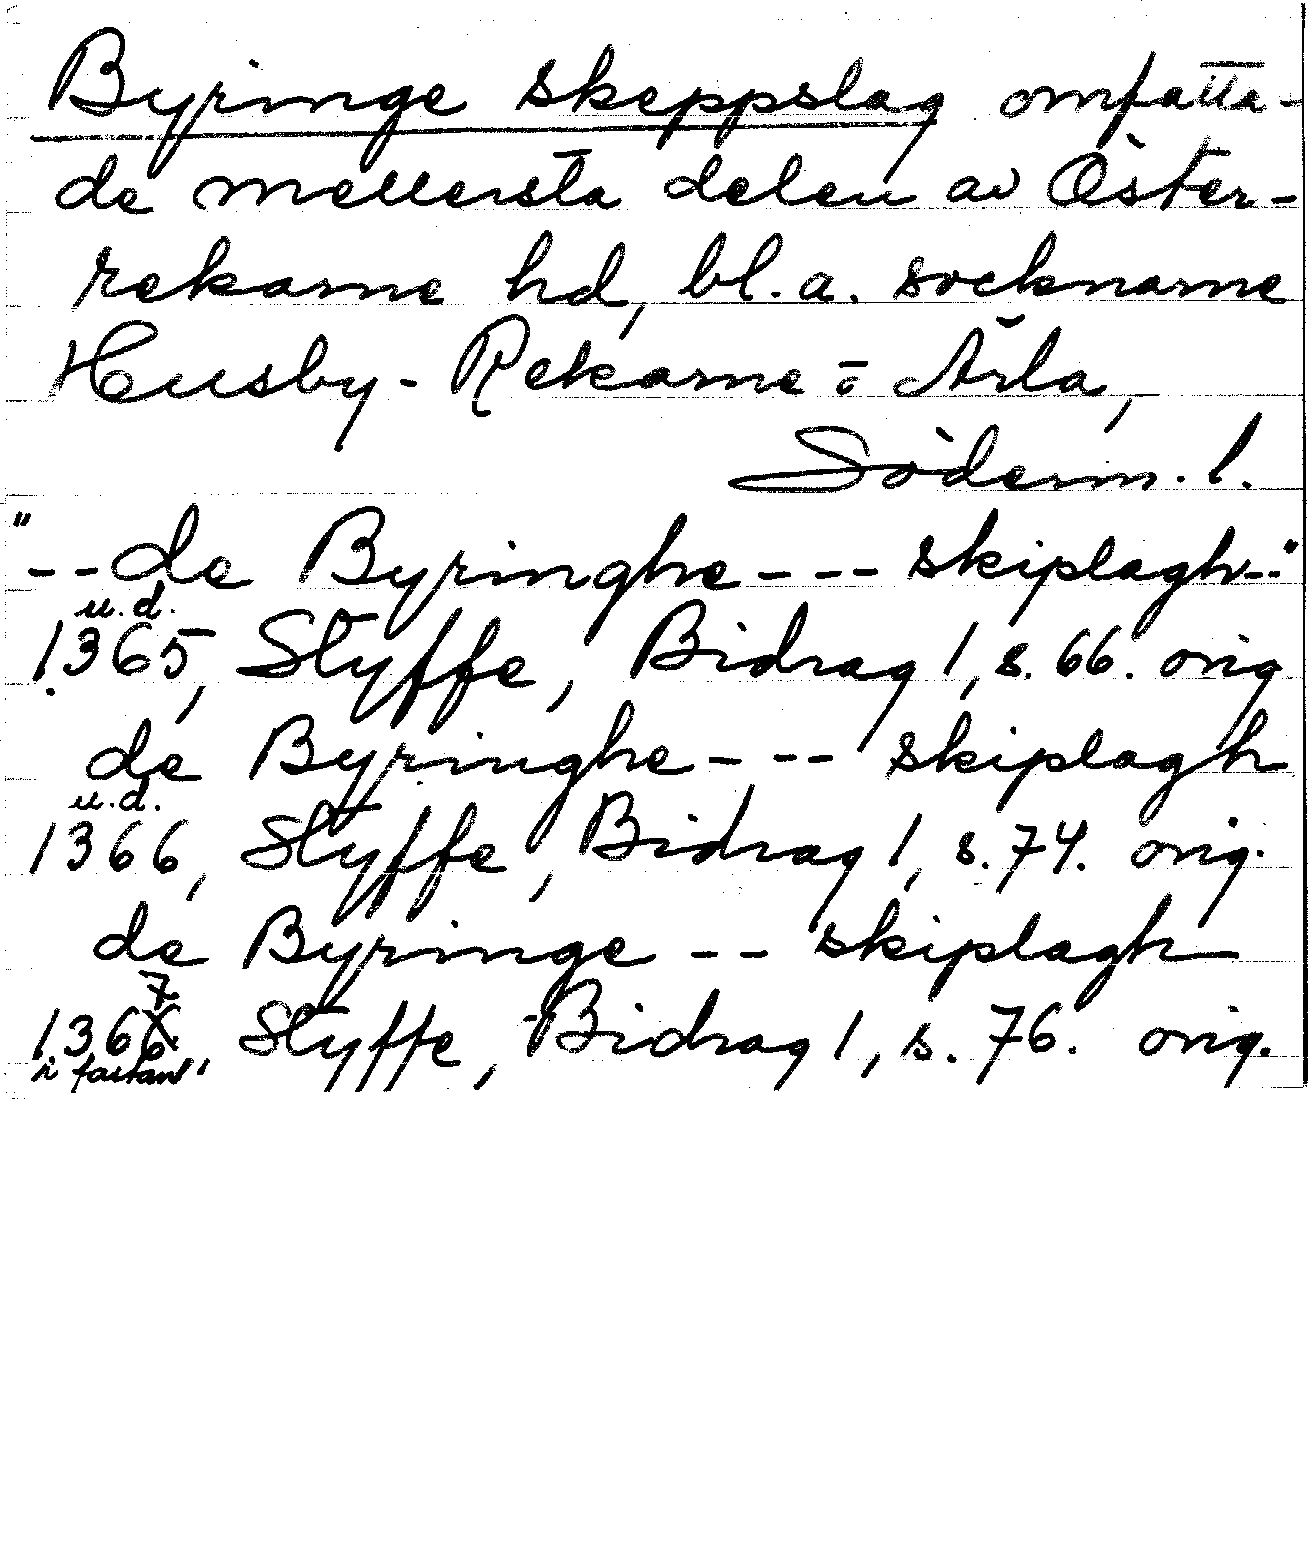 Byringe skeppslag omfatta-
de mellersta delen av Öster-
rekarne hd, bl. a. socknarne
Husby-Rekarne o Ärla,
Söderm. l.
"--de Byringhe --- skiplagh--"
u.d.
1365, Styffe, Bidrag 1, s. 66. orig
de Byringhe --- skiplagh
u.d.
1366, Styffe, Bidrag 1, s. 74. orig.
de Byringe -- skiplagh
7
1366, Styffe, Bidrag 1, s. 76. orig.
i fastan